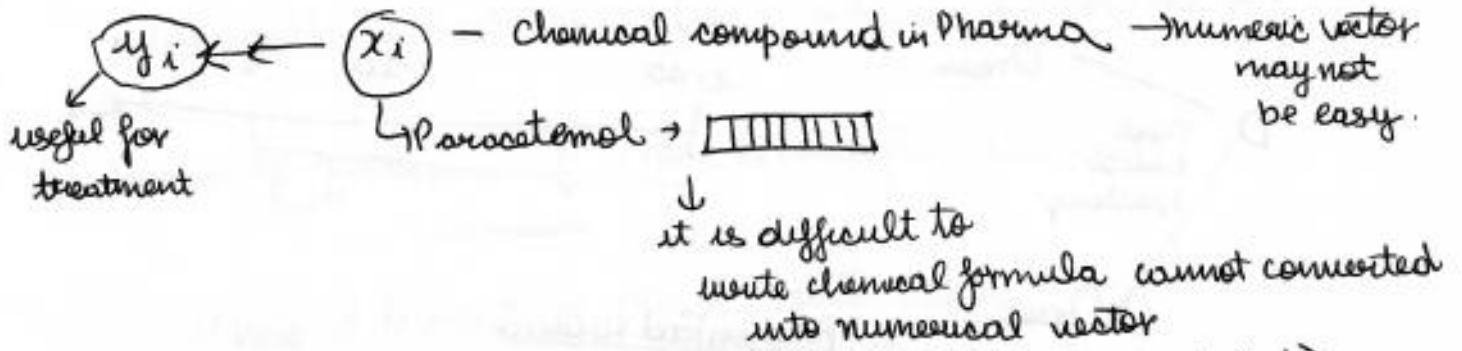 yi ← xi – Chemical compound in Pharma → numeric vector
may not
be easy.
useful for
treatment
↳ Paracetemol →
↓
it is difficult to
write chemical formula cannot converted
into numerical vector